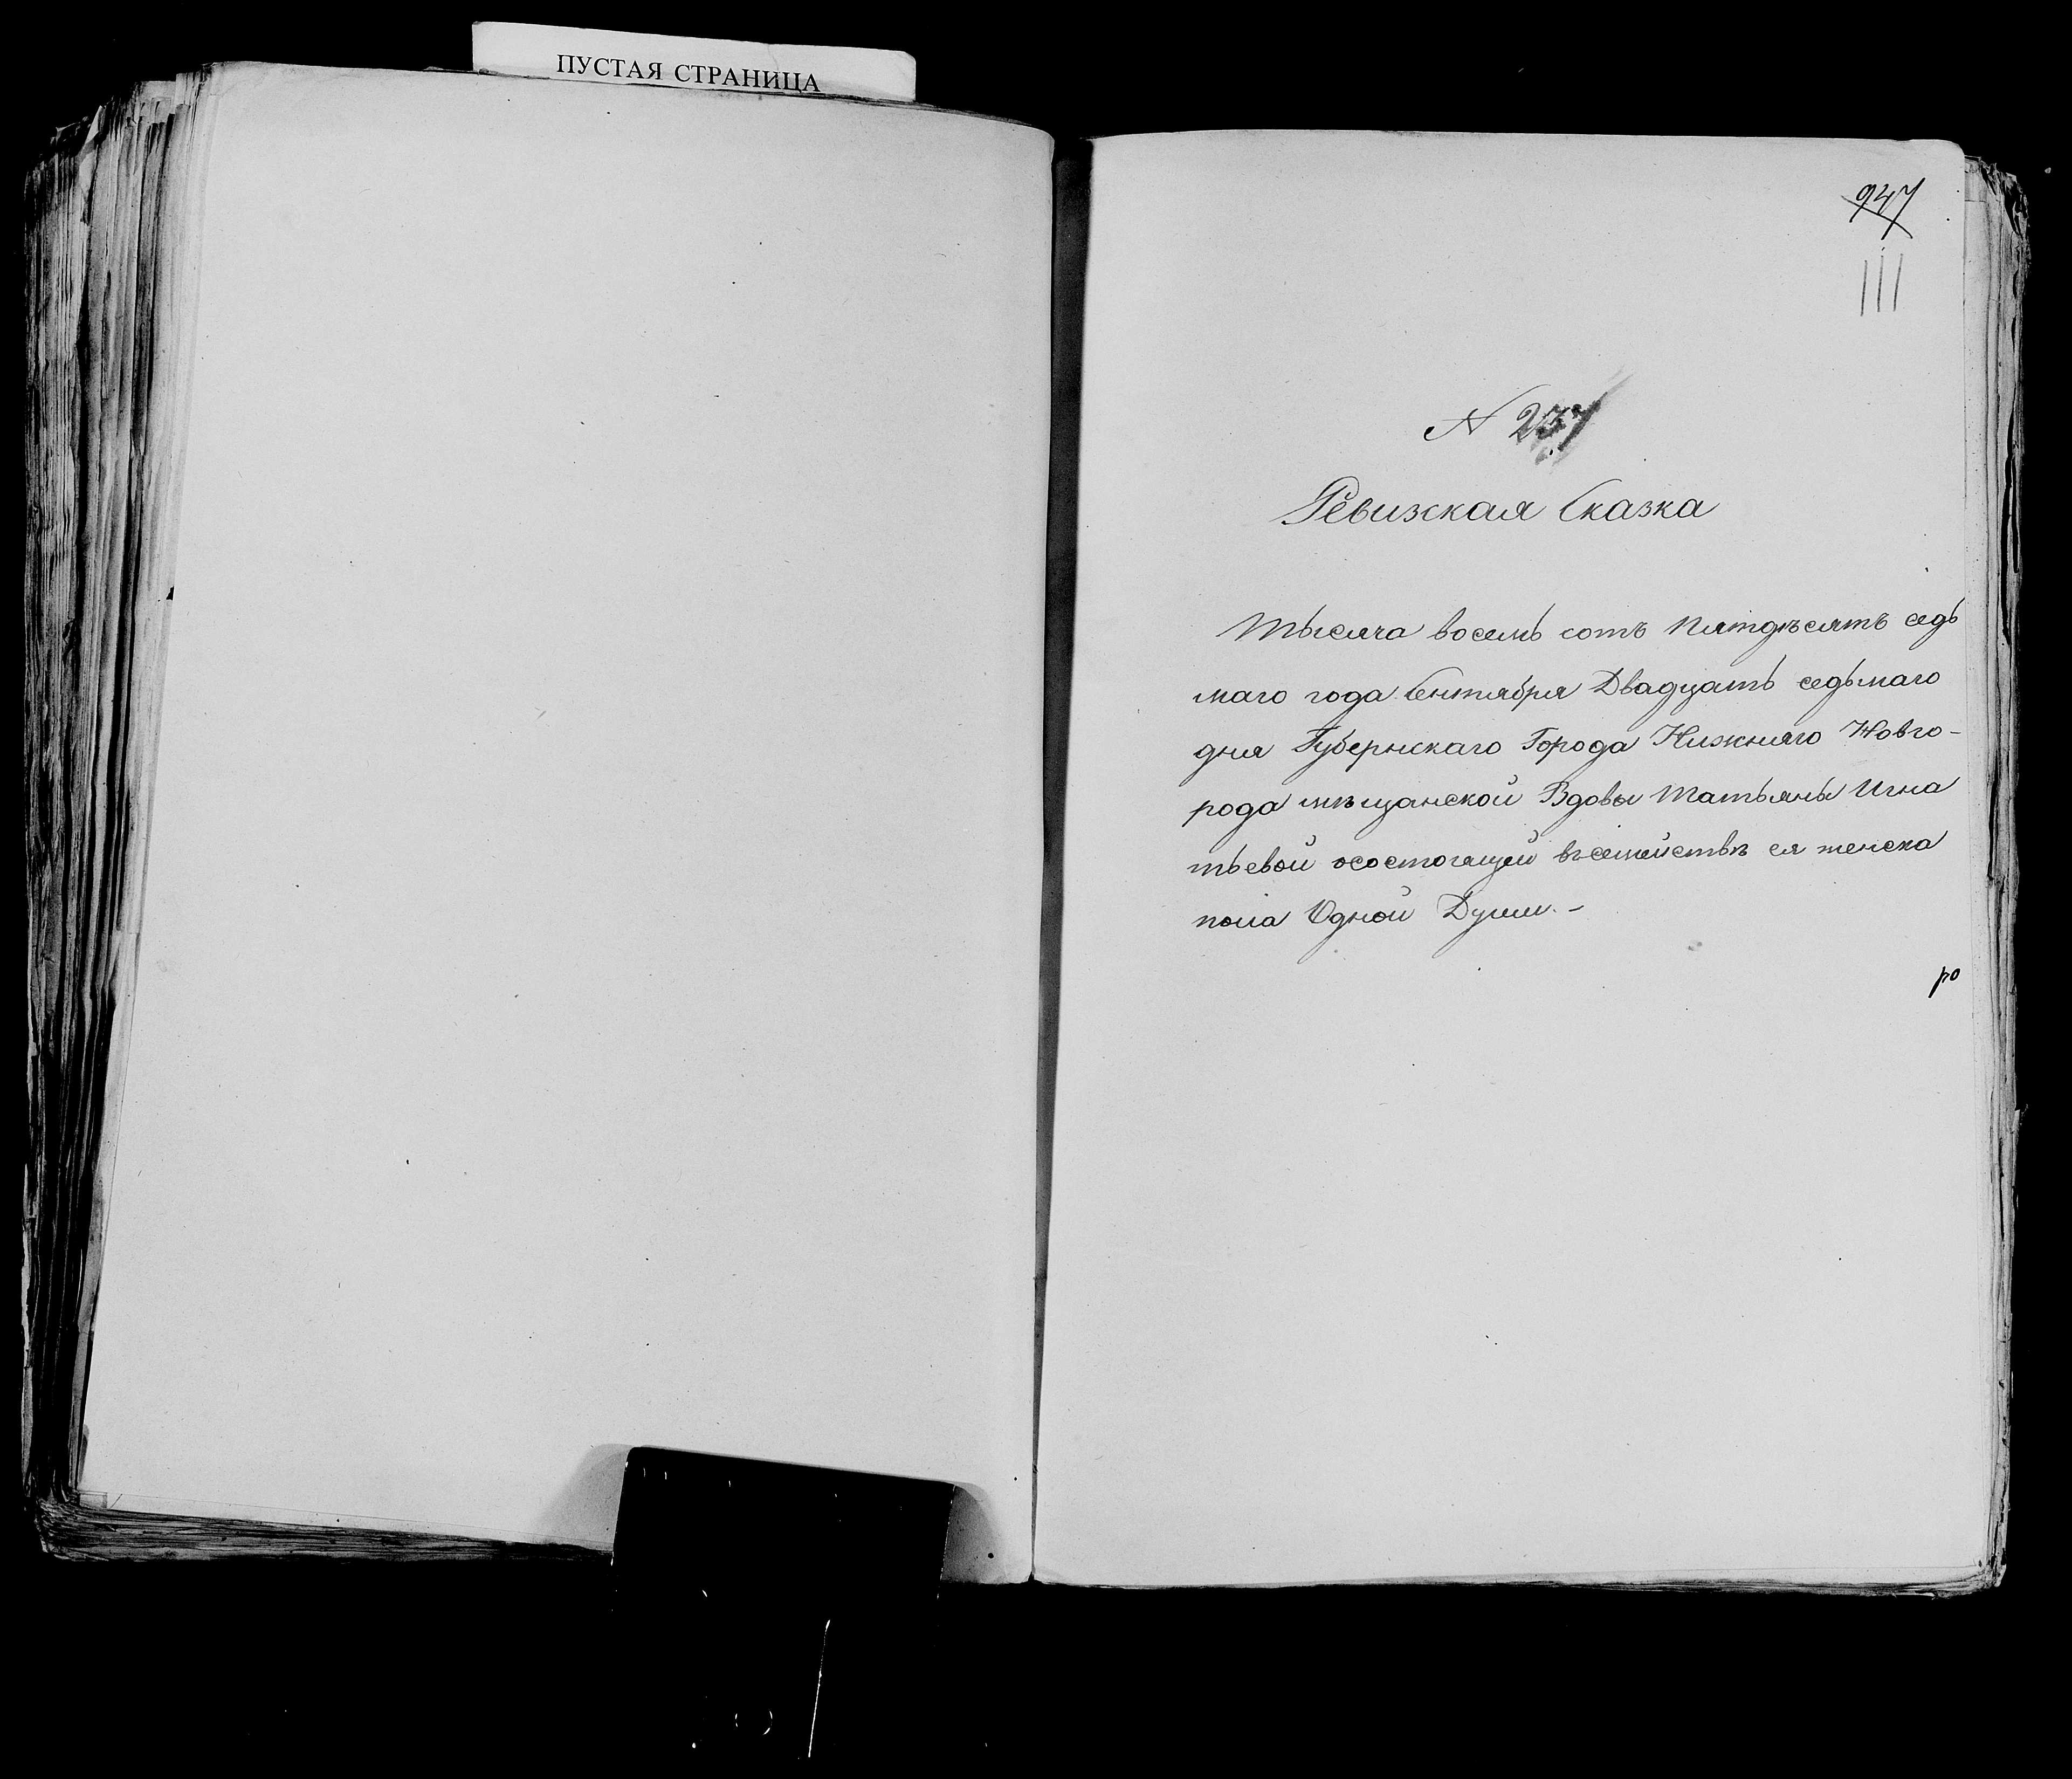 ПУСТАЯ СТРАНИЦА
947
111
N 237
Ревизская Сказка
Тысяча восемь сотъ Пятдѣсятъ седь
маго года Сентября Двадцать седьмаго
дня Губернскаго Города Нижняго Новго-
рода мѣщанской Вдовы Татьяны Игна
тьевой осостоящей въсемействѣ ея женска
пола Одной Души.-
ро